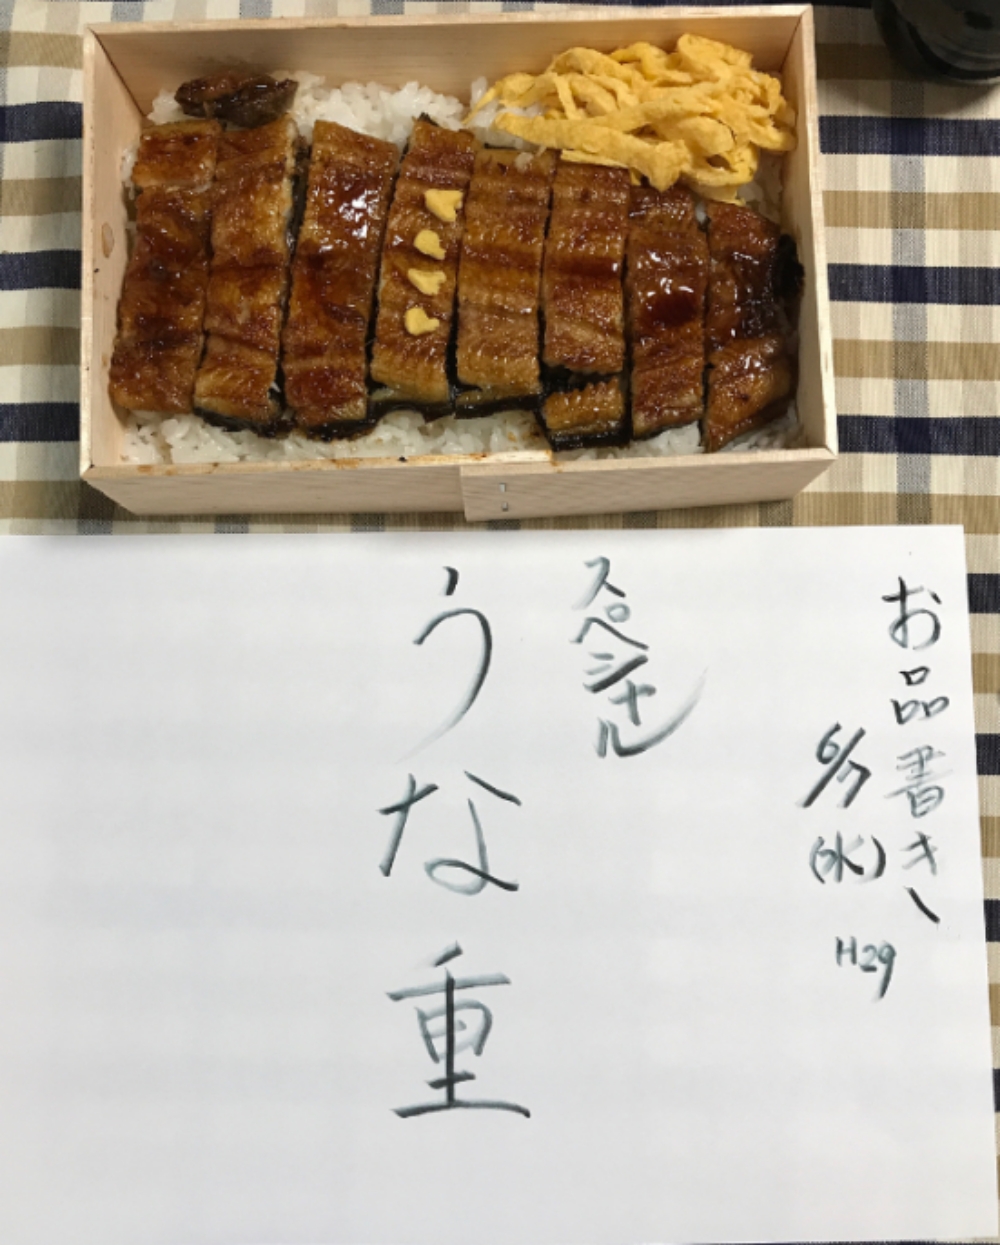 お品書き
6/7(水)
H29
スペシャル
うな重